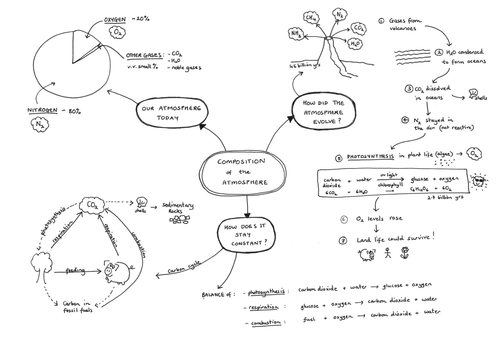 OXYGEN - 20%
O₂
OTHER GASES: - CO₂
v.v. small % - H₂O
- noble gases
NITROGEN - 80%
N₂
OUR ATMOSPHERE
TODAY
COMPOSITION
of the
ATMOSPHERE
HOW DID THE
ATMOSPHERE
EVOLVE?
CH₄
N₂
CO₂
NH₃
H₂O
4.5 billion yrs
① Gases from
volcanoes
② H₂O condensed
to form oceans
③ CO₂ dissolved
in oceans
shells
④ N₂ stayed in
the air (not reactive)
⑤ PHOTOSYNTHESIS in plant life (algae)
O₂
carbon dioxide + water sunlight chlorophyll glucose + oxygen
6CO₂ + 6H₂O → C₆H₁₂O₆ + 6O₂
2.7 billion yrs
⑥ O₂ levels rose
⑦ Land life could survive!
HOW DOES IT
STAY
CONSTANT?
Carbon cycle
CO₂
shells
sedimentary
rocks
photosynthesis
respiration
respiration
combustion
feeding
Carbon in
fossil fuels
BALANCE OF: - photosynthesis: carbon dioxide + water → glucose + oxygen
- respiration: glucose + oxygen → carbon dioxide + water
- combustion: fuel + oxygen → carbon dioxide + water